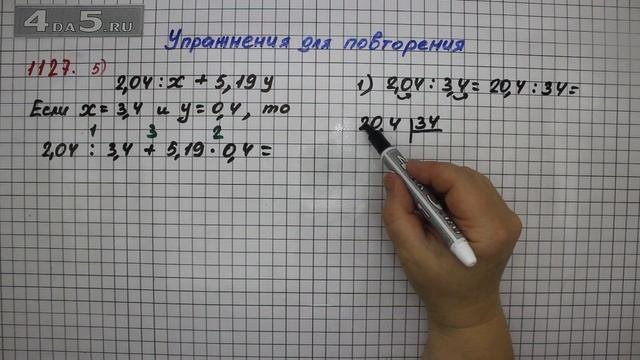 4DA5.RU
Упражнения для повторения
1127. 5)
2,04 : x + 5,19 y
Если x = 3,4 и y = 0,4, то
1 3 2
2,04 : 3,4 + 5,19 · 0,4 =
1) 2,04 : 3,4 = 20,4 : 34 =
20,4 34